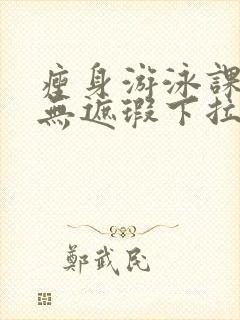 瘦身游泳課
無遮瑕下拉
鄭武民